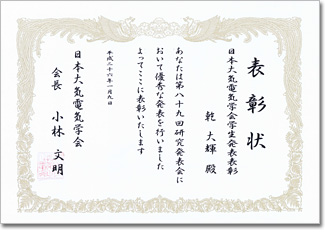 表彰状
日本大気電気学会学生発表表彰
乾 大輝 殿
あなたは第八十九回研究発表会に
おいて優秀な発表を行いました
よってここに表彰いたします
平成二十六年一月九日
日本大気電気学会
会長 小林 文明